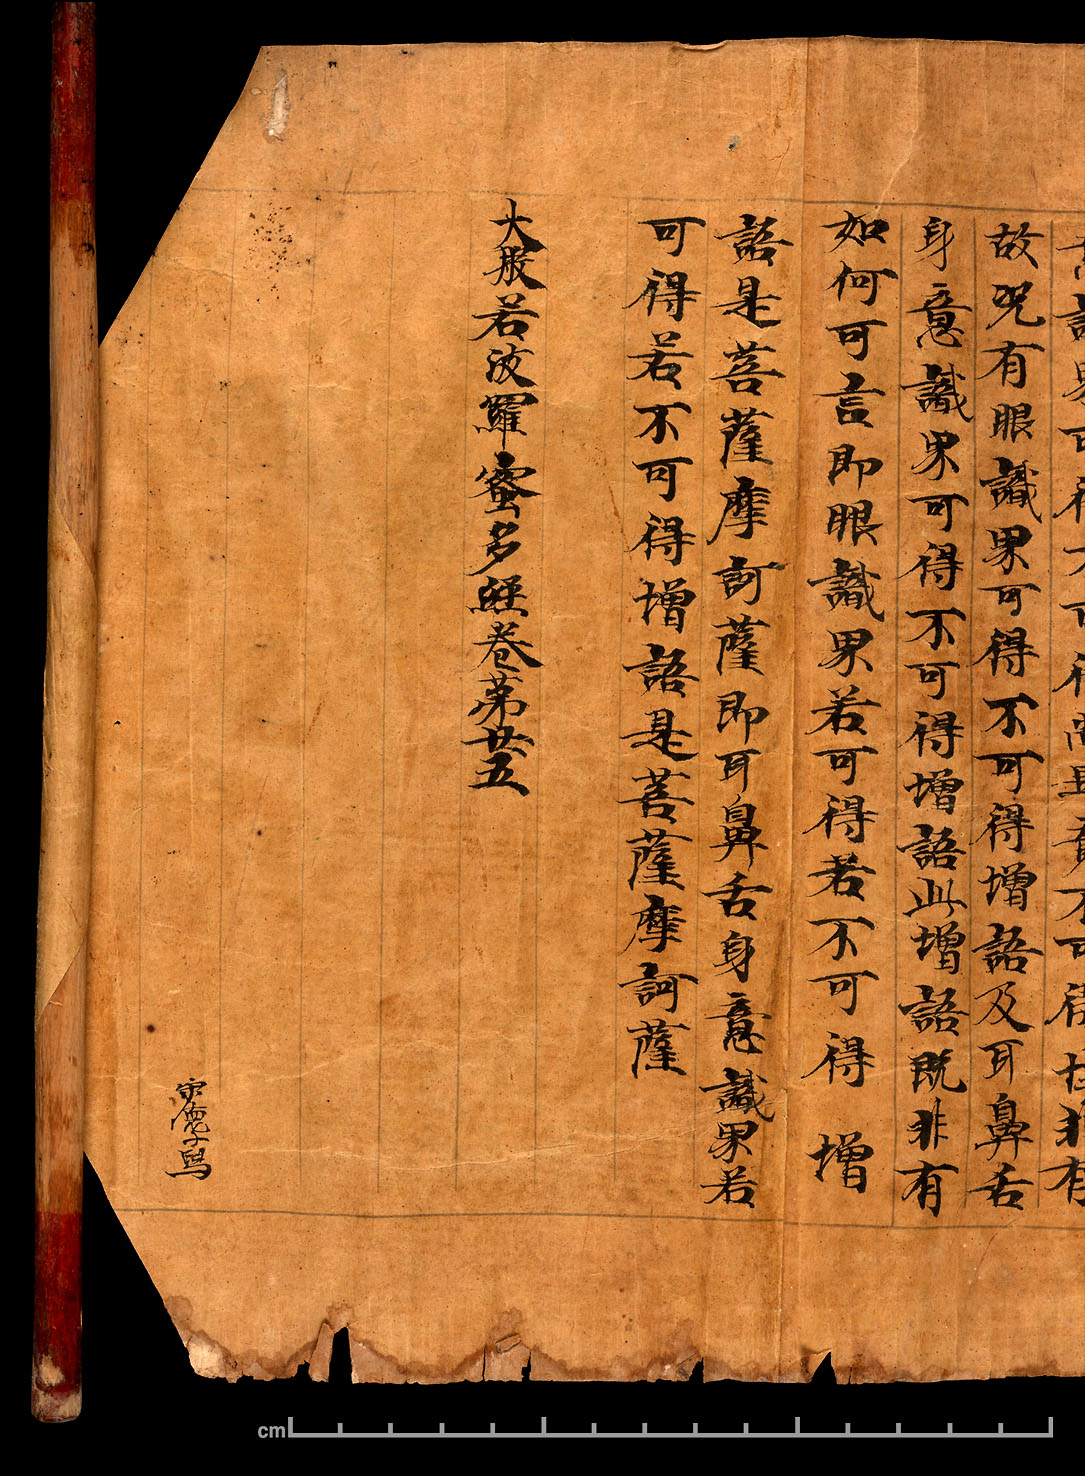 意識界可得不可得尚畢竟不可得性非有
故况有眼識界可得不可得增語及耳鼻舌
身意識界可得不可得增語此增語既非有
如何可言即眼識界若可得若不可得增
語是菩薩摩訶薩即耳鼻舌身意識界若
可得若不可得增語是菩薩摩訶薩
大般若波羅蜜多經卷第廿五
宋德子寫
cm